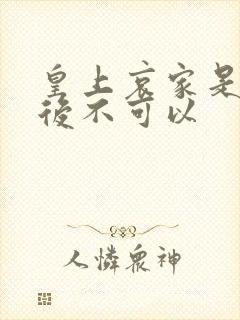 皇上哀家是
後不可以
人憐眾神